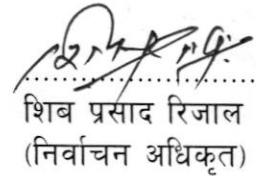 शिब प्रसाद रिजाल
(निर्वाचन अधिकृत)